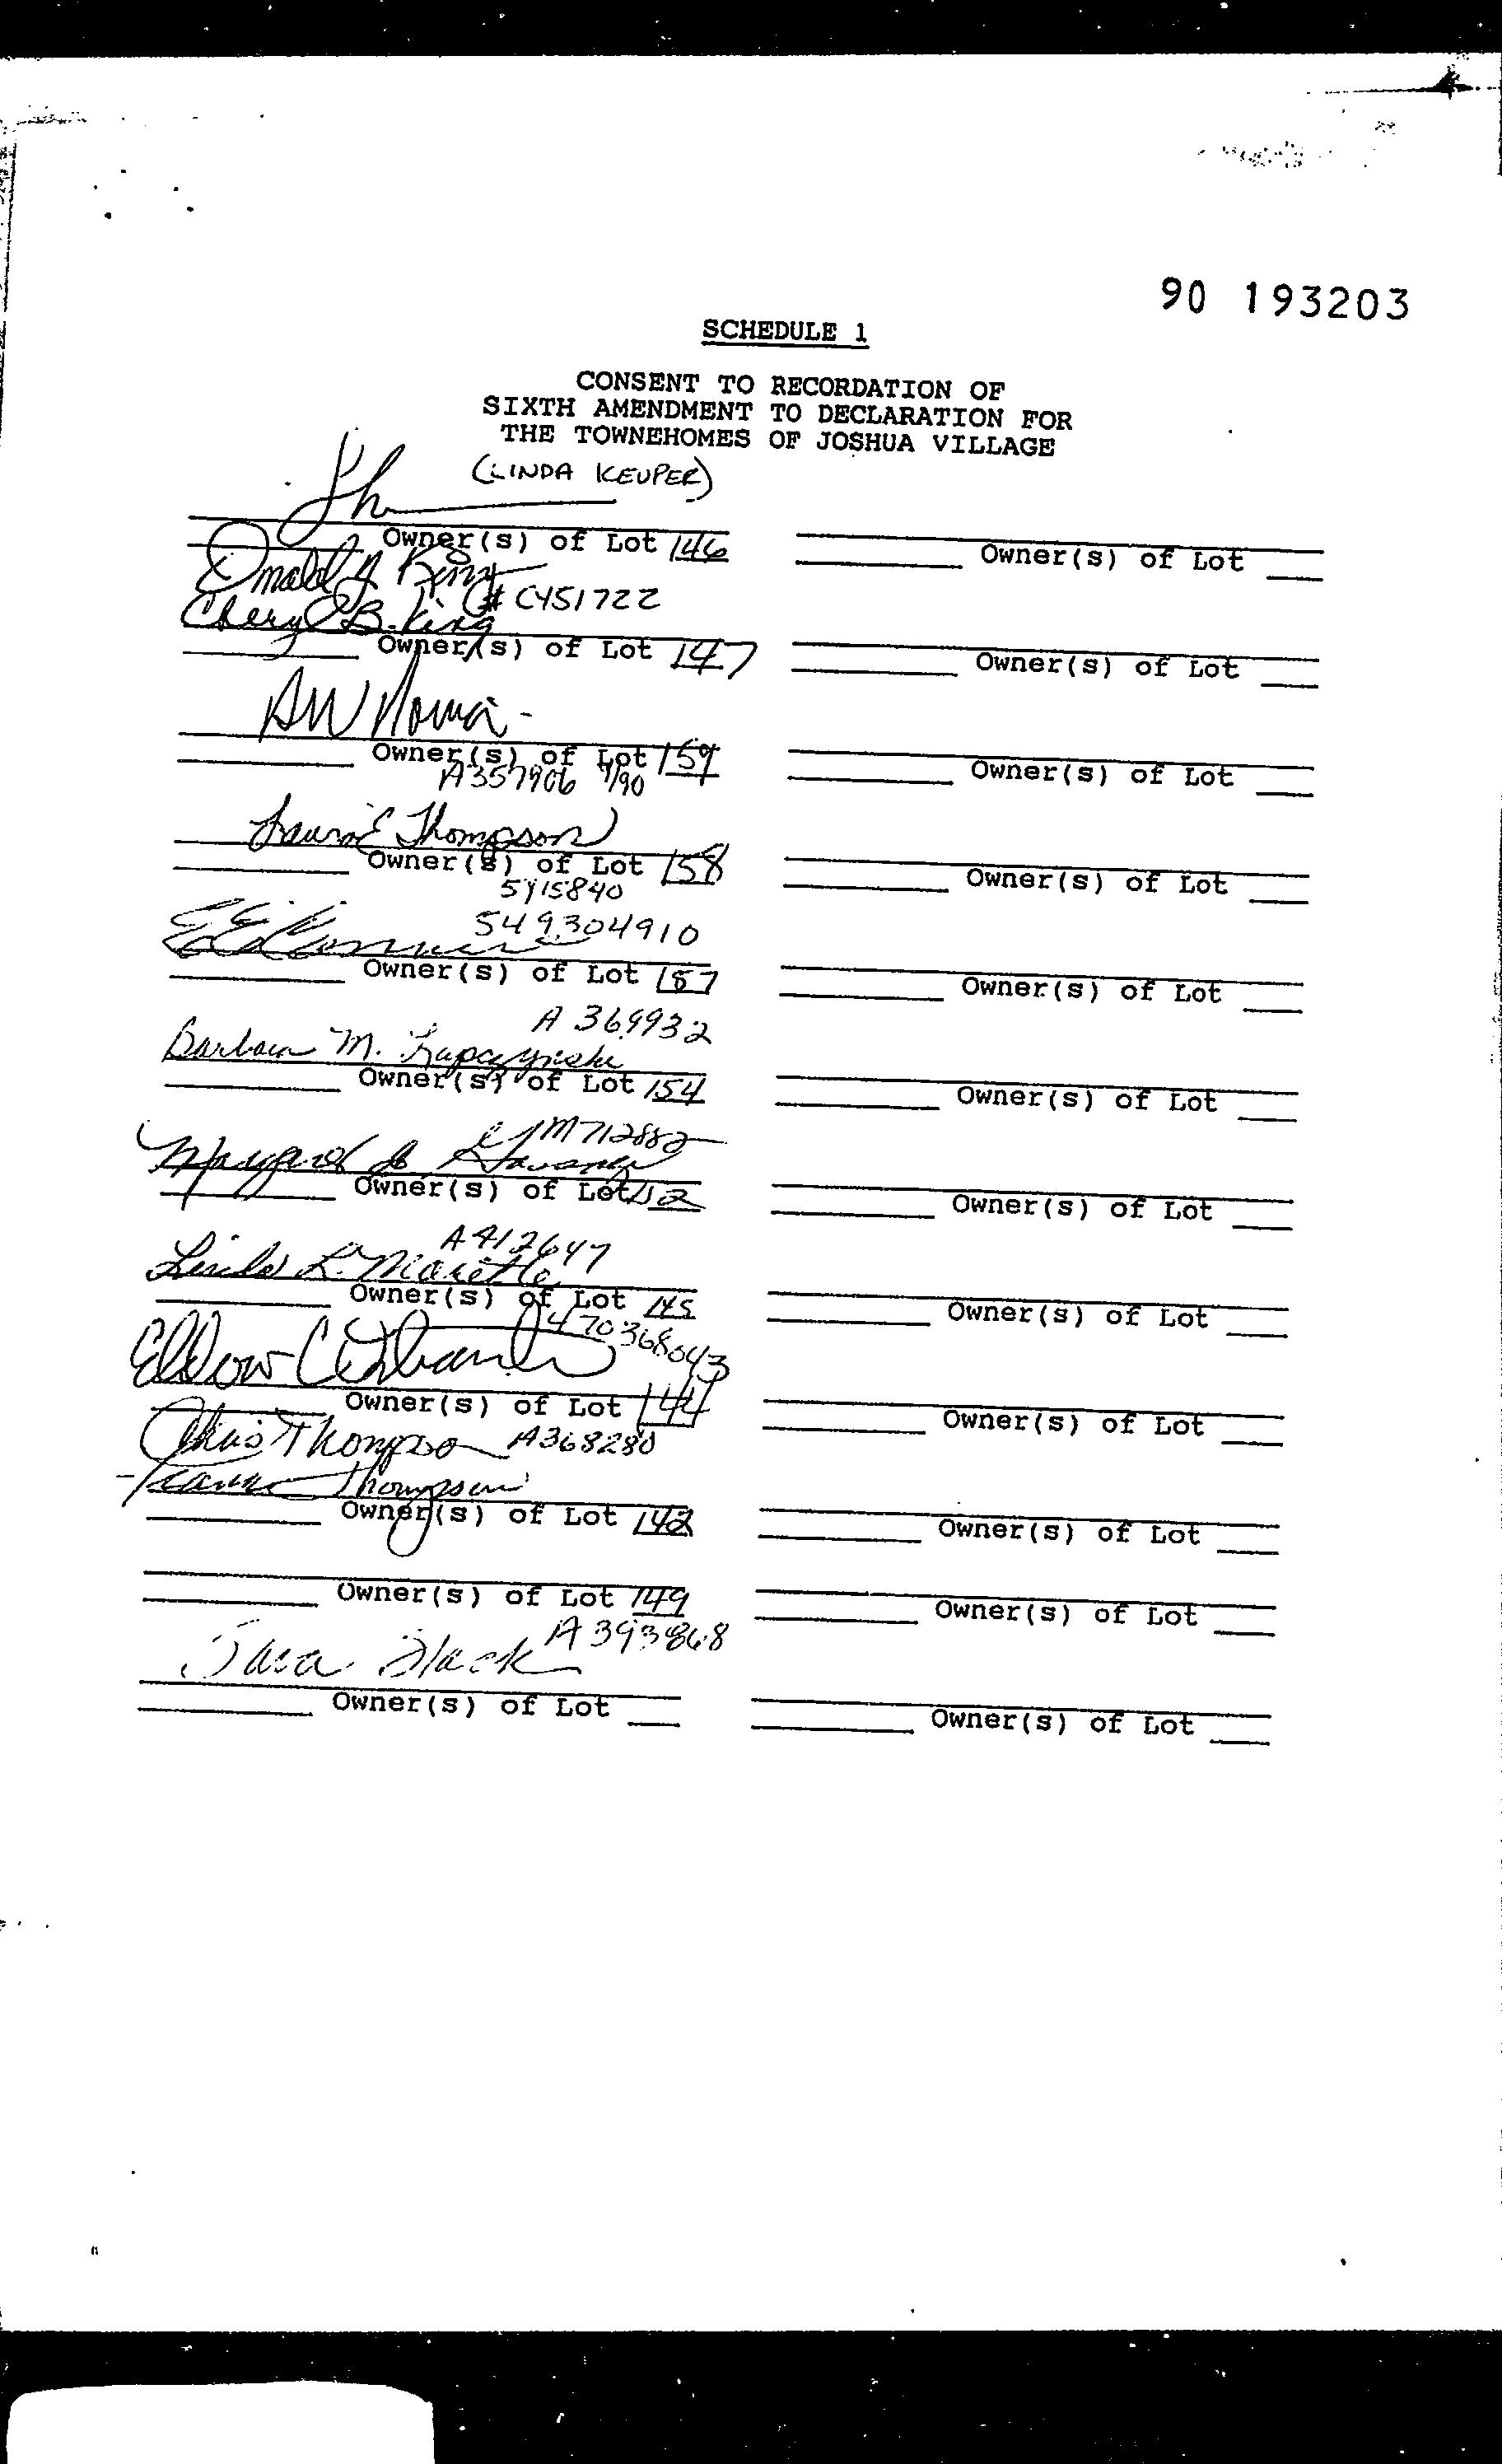 90 193203
SCHEDULE 1
CONSENT TO RECORDATION OF
SIXTH AMENDMENT TO DECLARATION FOR
THE TOWNEHOMES OF JOSHUA VILLAGE
(LINDA KEUPER)
Owner(s) of Lot 146
Owner(s) of Lot
Donald King
# C451722
Cheryl B. King
Owner(s) of Lot 147
Owner(s) of Lot
AW
Owner(s) of Lot 159
Owner(s) of Lot
A357906 9/90
Laura E Thompson
Owner(s) of Lot 158
Owner(s) of Lot
5915840
549304910
Owner(s) of Lot 157
Owner(s) of Lot
A 369932
Barbara M.
Owner(s) of Lot 154
Owner(s) of Lot
M712882
Margaret
Owner(s) of Lot 152
Owner(s) of Lot
A412647
Linda L.
Owner(s) of Lot 145
Owner(s) of Lot
470368043
Owner(s) of Lot 144
Owner(s) of Lot
Chris Thompson A368280
Thompson
Owner(s) of Lot 142
Owner(s) of Lot
Owner(s) of Lot 149
Owner(s) of Lot
A393868
Sara Black
Owner(s) of Lot
Owner(s) of Lot